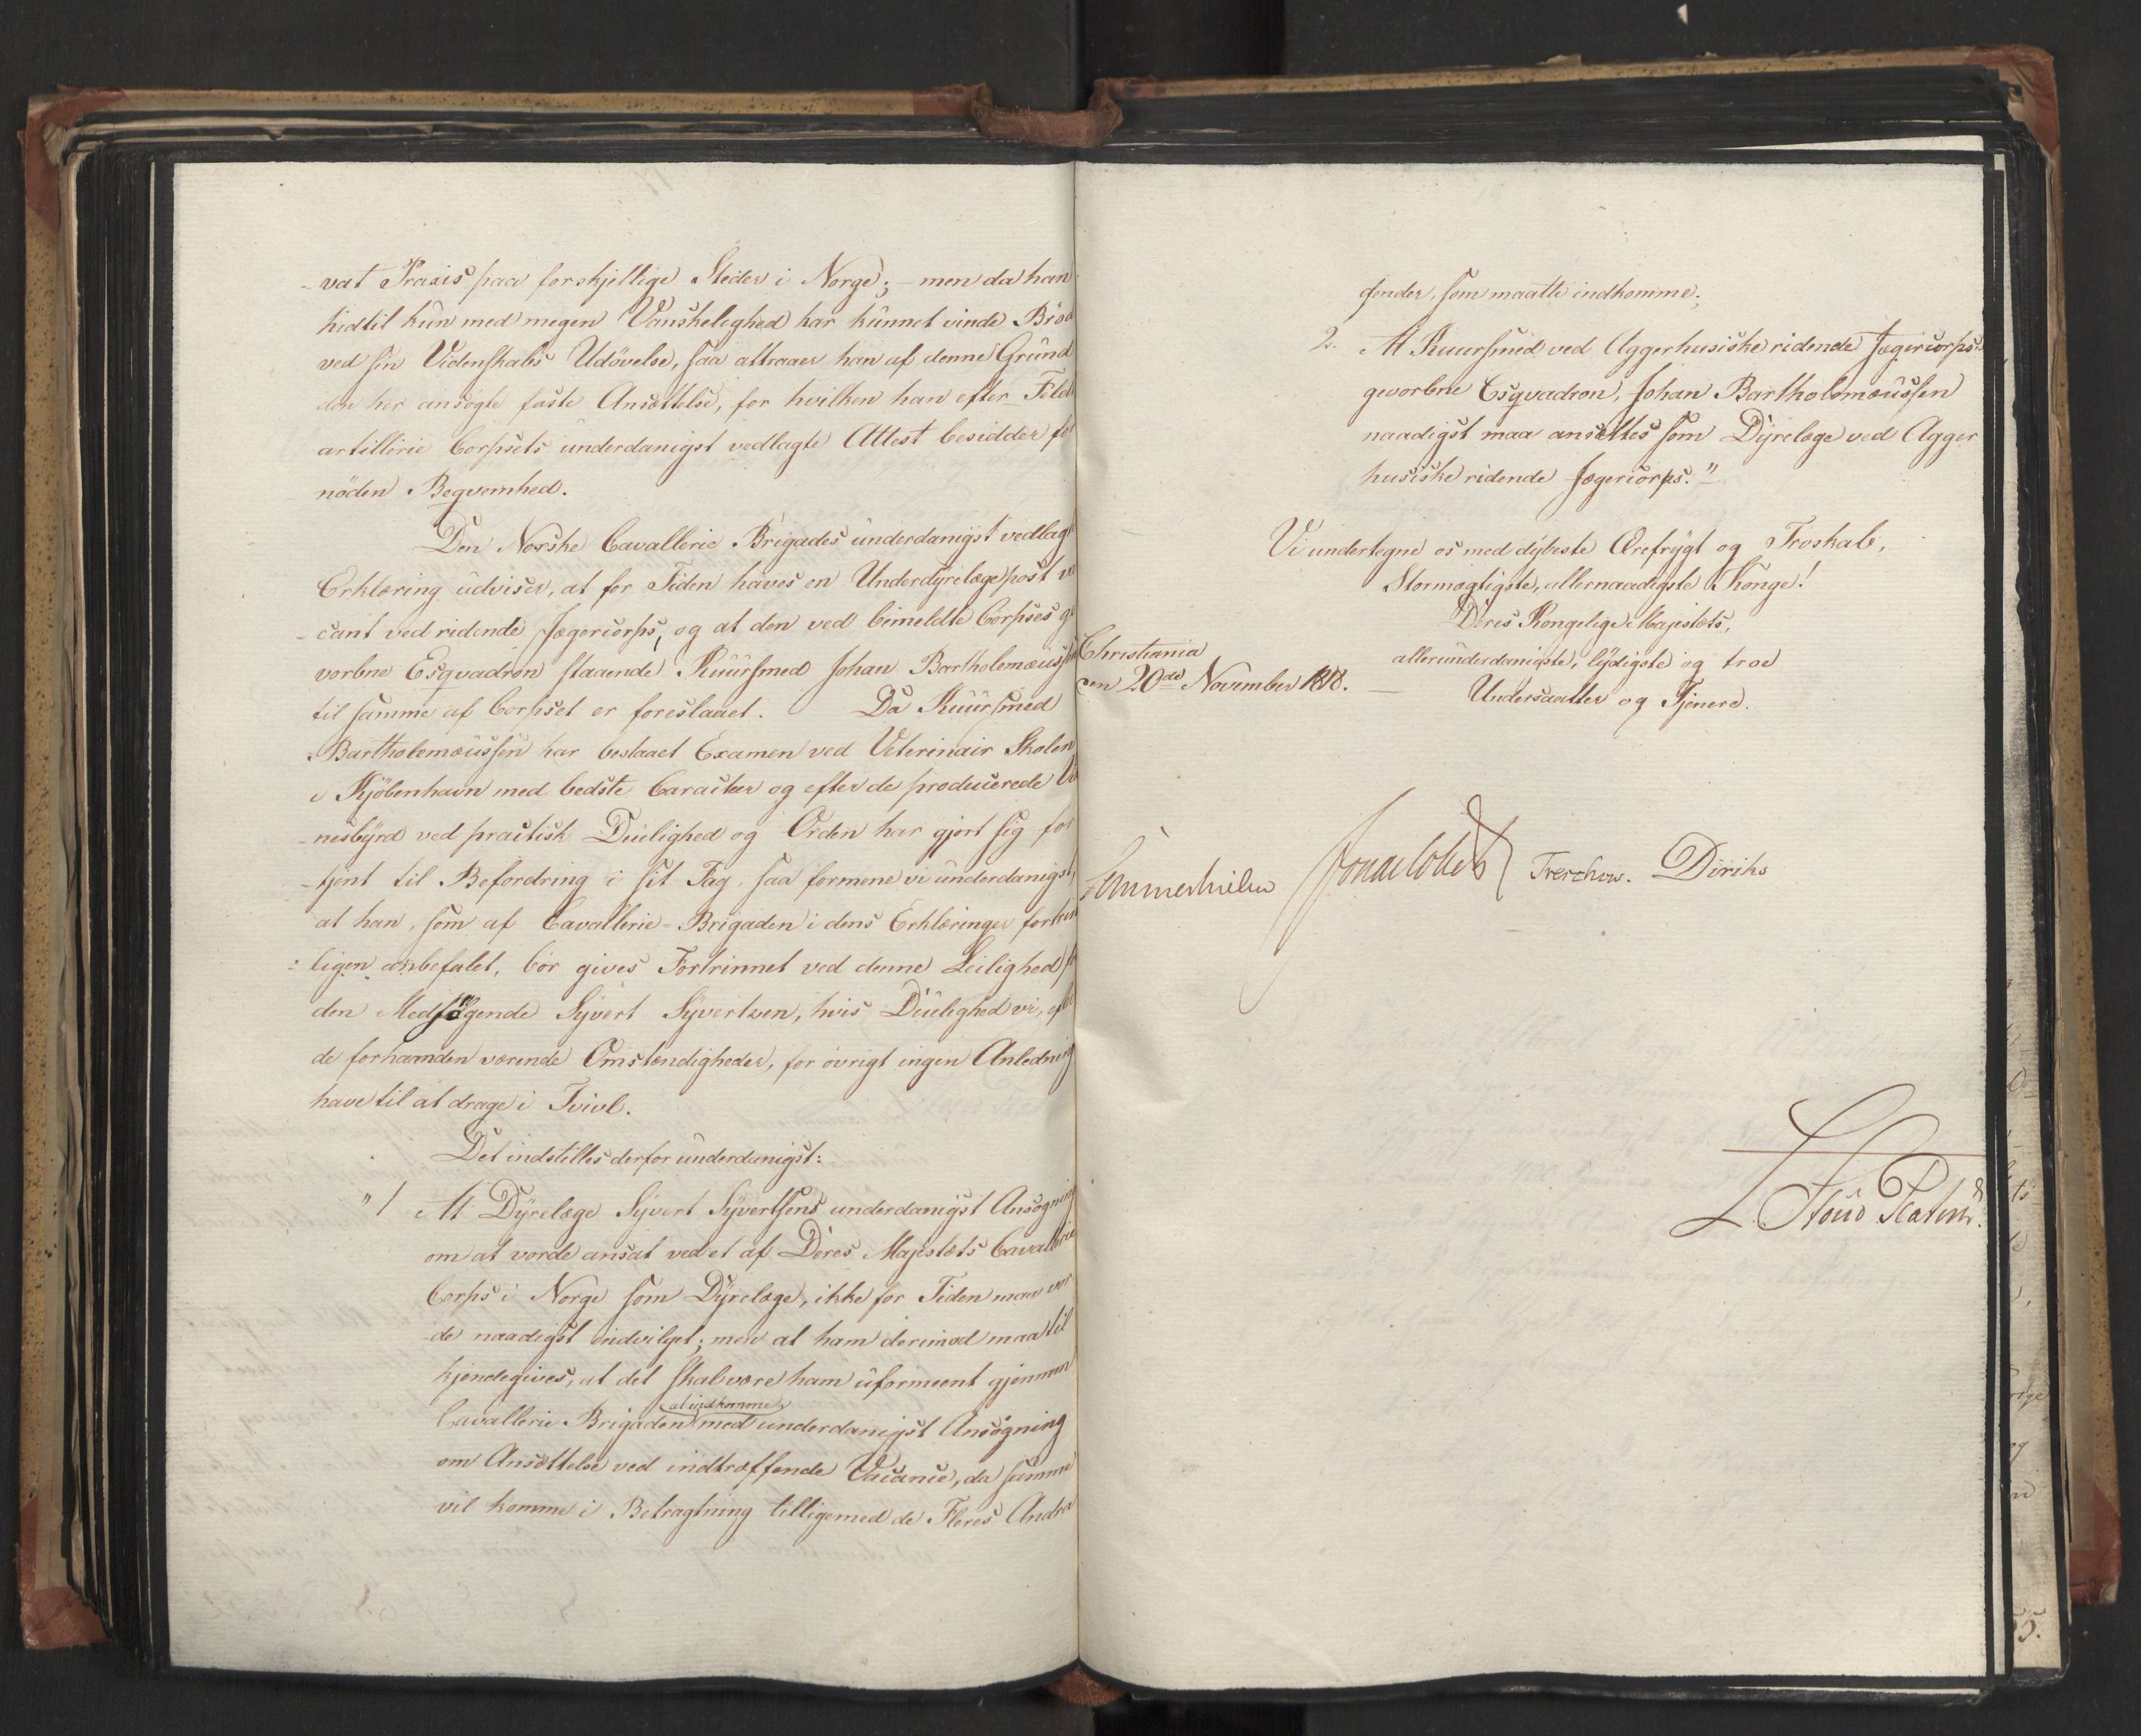 -vat Praxis paa forskjellige Steder i Norge; - men da han
hidtil kun med megen Vanskelighed har kunnet vinde Brød
ved sin Videnskabs Udøvelse, saa attraaer han af denne Grund
den her ansøgte faste Ansættelse, for hvilken han efter Feldt
artillerie Corpsets underdanigst vedlagte Attest besidder for
nøden Beqvemhed.
Den Norske Cavallerie Brigades underdanigst vedlagte
Erklæring udviser, at for Tiden haves en Underdyrelægepost va
-cant ved ridende Jægercorps, og at den ved bemeldte Corpses ge
vorbne Esqvadron staaende Kuursmed Johan Bartholomæussen
til samme af Corpset er foreslaaet. Da Kuursmed
Bartholomæussen har bestaaet Examen ved Veterinair Skolen
i Kjöbenhavn med bedste Caracteer og efter de producerede Vid
-nesbyrd ved practisk Duelighed og Orden har gjort sig for
-tjent til Befordring i sit Fag, saa formene vi underdanigst,
at han, som af Cavallerie-Brigaden i dens Erklæringer fortrin
-ligen anbefalet, bör gives Fortrinnet ved denne Leilighed for
den Medsøgende Syvert Syvertsen, hvis Duelighed vi, efter
de forhaanden værende Omstændigheder, for øvrigt ingen Anledning
have til at drage i Tvivl.
Det indstilles derfor underdanigst:
"1 At Dyrelæge Syvert Syvertsens underdanigst Ansøgning
om at vorde ansat ved et af Deres Majestæts Cavallerie
Corps i Norge som Dyrelæge, ikke for Tiden maae vor
de naadigst indvilget; men at ham derimod maa til
kjendegives, at det skal være ham uformeent gjennem
at indkomme
Cavallerie Brigaden med underdanigst Ansøgning
om Ansættelse ved indtræffende Vacance, da samme
vil komme i Betragtning tilligemed de Fleres Andra
gender, som maatte indkomme.
2. At Kuursmed ved Aggerhusiske ridende Jægercorps's
gevorbne Esqvadron, Johan Bartholomæussen
naadigst maa ansættes som Dyrelæge ved Agger
husiske ridende Jægercorps."
Vi undertegne os med dybeste Ærefrygt og Troskab,
Stormægtigste, allernaadigste Konge!
Deres Kongelige Majestæts,
Christiania
allerunderdanigste, lydigste og troe
den 20de November 1818.
Undersaatter og Tjenere.
Sommerhielm Jonas Collett Treschow. Diriks
L Stoud Platou.